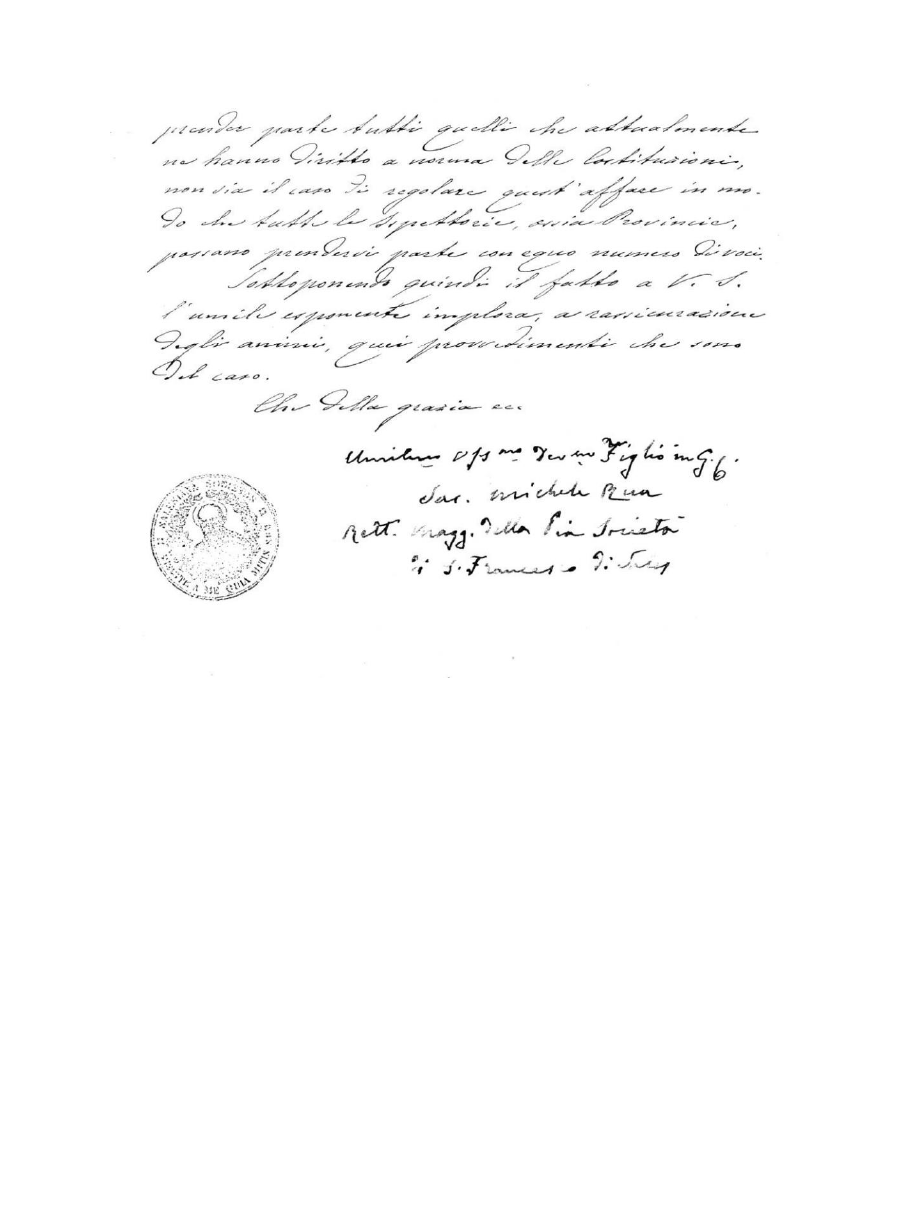 prender parte tutti quelli che attualmente
ne hanno diritto a norma delle Costituzioni,
non sia il caso di regolare quest'affare in mo-
do che tutte le Ispettorie, ossia Provincie,
possano prendervi parte con equo numero di voci.
Sottoponendo quindi il fatto a V. S.
l'umile esponente implora, a rassicurazione
degli animi, quei provvedimenti che sono
del caso.
Che della grazia ec.
Umilmo Devmo Figlio in G.
Sac. Michele Rua
Rett. Magg. della Pia Società
di S. Francesco di Sales
DISCITE A ME QUIA MITIS